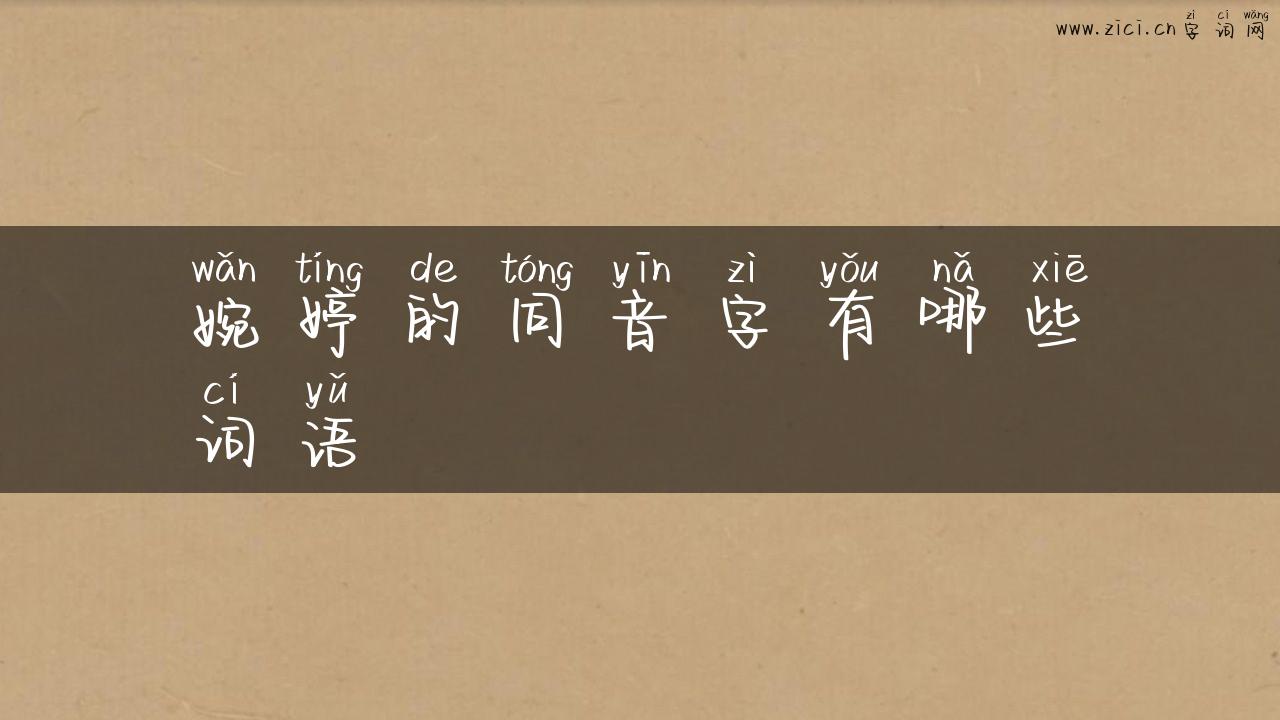 zì cí wǎng
www.zici.cn 字词网
wǎn tíng de tóng yīn zì yǒu nǎ xiē
婉婷的同音字有哪些
cí yǔ
词语